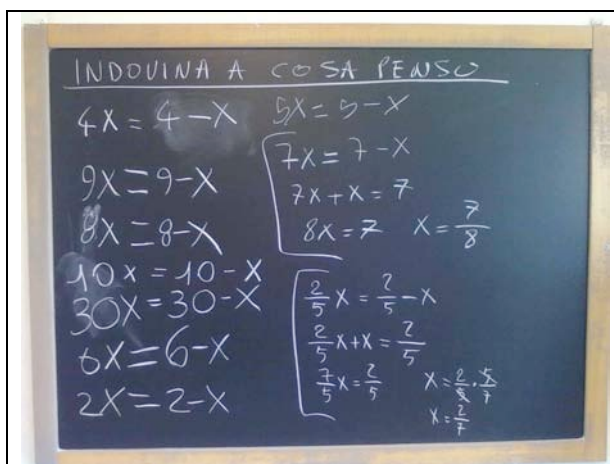 INDOVINA A COSA PENSO
4x = 4-x
9x = 9-x
8x = 8-x
10x = 10-x
30x = 30-x
6x = 6-x
2x = 2-x
5x = 5-x
7x = 7-x
7x+x = 7
8x = 7 x = 7/8
2/5 x = 2/5 - x
2/5 x+x = 2/5
7/5 x = 2/5 x = 2/5 · 5/7
x = 2/7